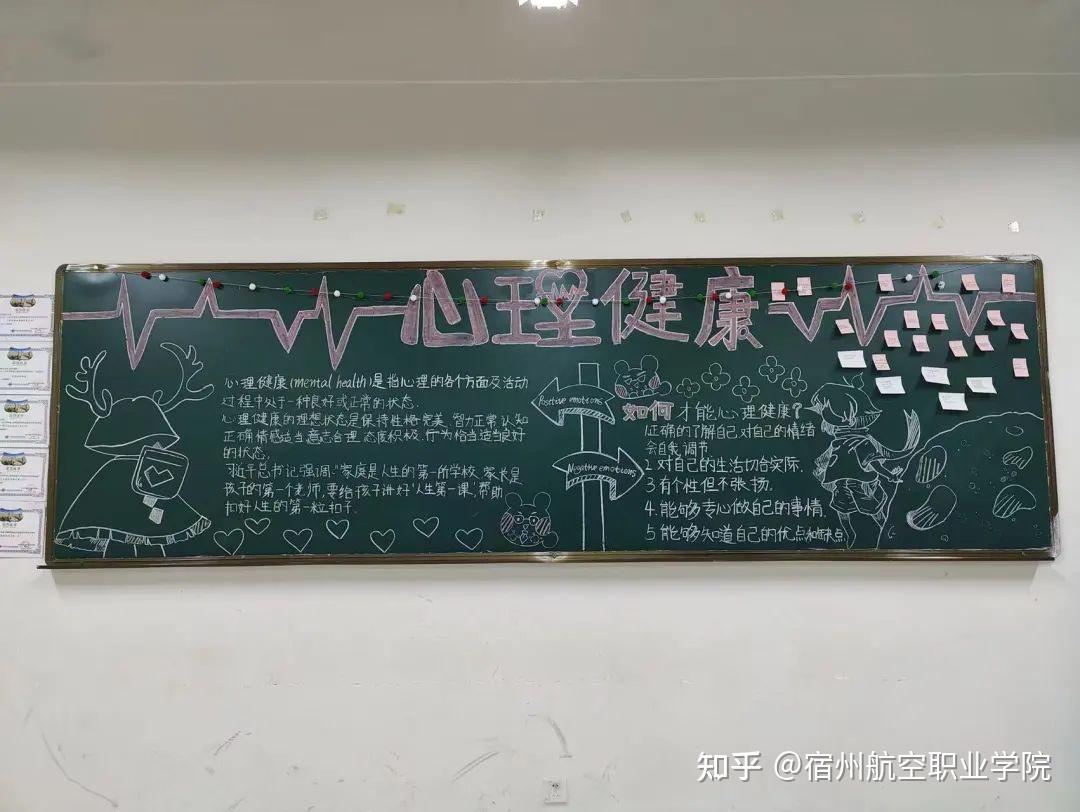 心理健康
心理健康(mental health)是指心理的各个方面及活动
过程中处于一种良好或正常的状态.
心理健康的理想状态是保持性格完美、智力正常、认知
正确、情感适当、意志合理、态度积极、行为恰当、适当良好
的状态,
习近平总书记强调:"家庭是人生的第一所学校,家长是
孩子的第一个老师,要给孩子讲好"人生第一课",帮助
扣好人生的第一粒扣子.
Positive emotions
Negative emotions
如何才能心理健康?
1.正确的了解自己,对自己的情绪
会自我调节
2.对自己的生活切合实际.
3.有个性但不张扬,
4.能够专心做自己的事情,
5.能够知道自己的优点和缺点.
知乎 @宿州航空职业学院